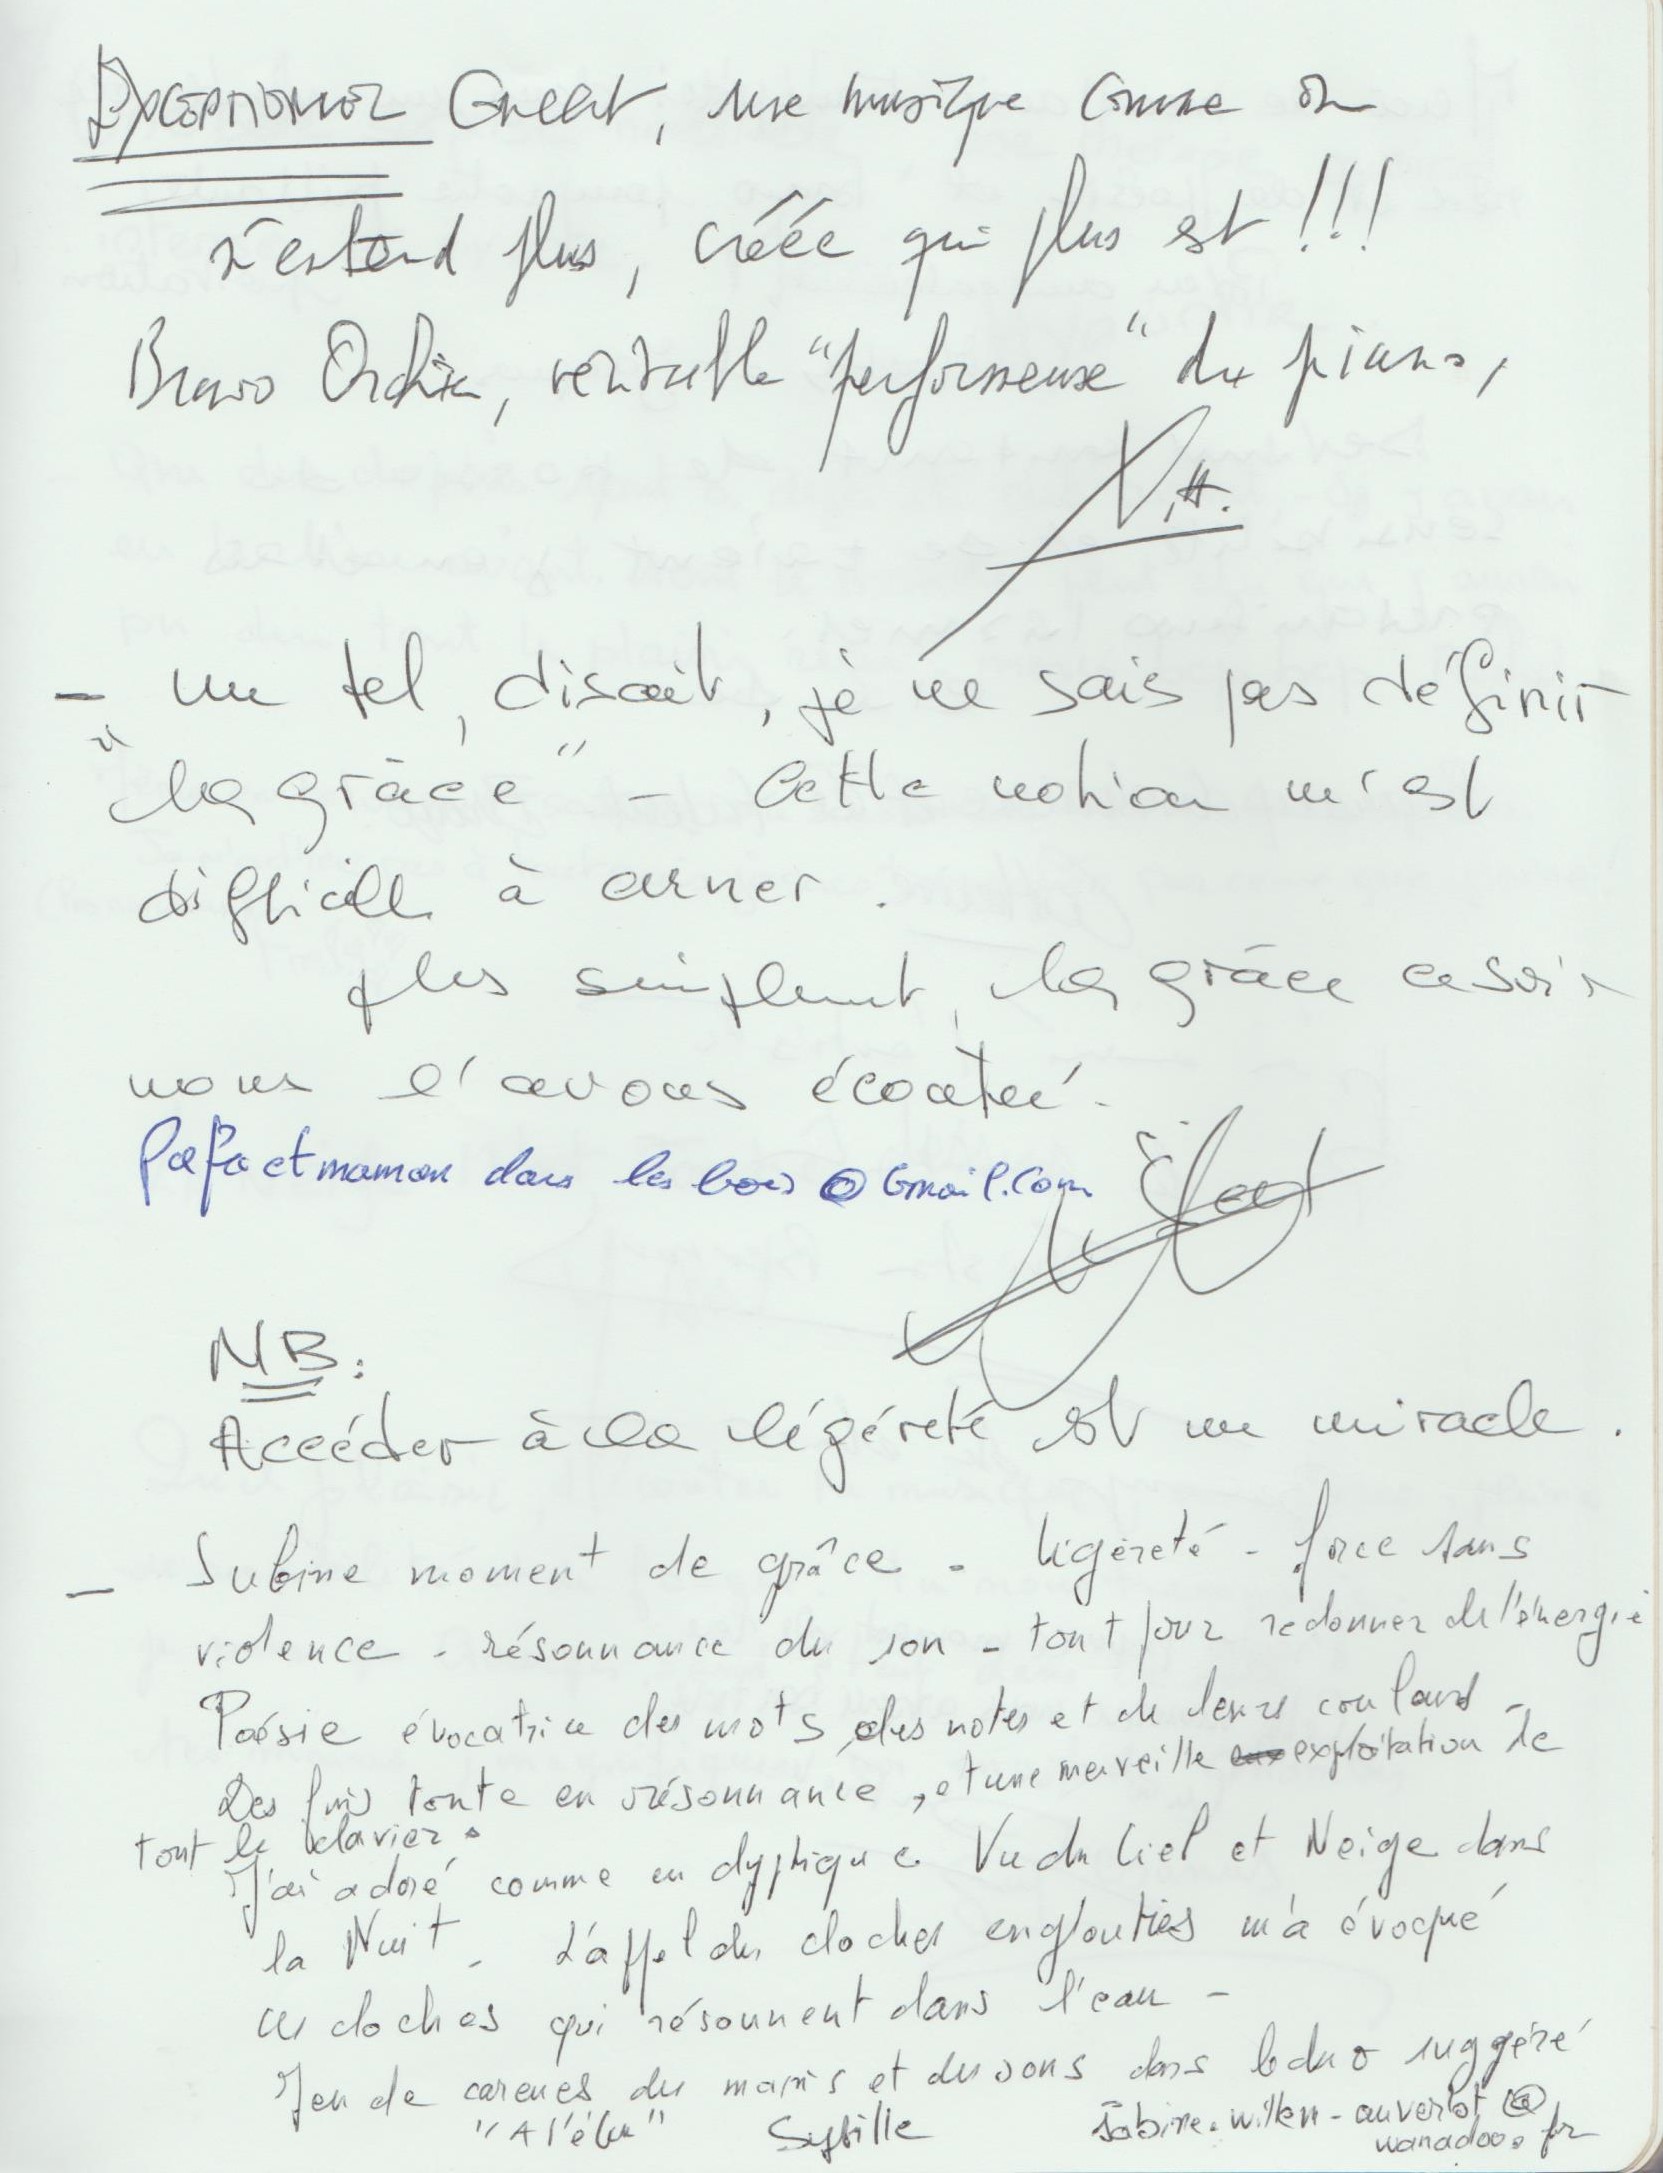 EXCEPTIONNEL Concert, une musique comme on
n'entend plus, créée qui plus est !!!
Bravo, véritable "performeuse" du piano,
N.H.
- un tel, disait, je ne sais pas définir
"la grâce" - Cette notion m'est
difficile à cerner.
plus simplement, la grâce ce soir
nous l'avons écoutée.
Papa et maman dans les bois @ Gmail.com
NB:
Accéder à la légéreté est un miracle.
- Sublime moment de grâce - légèreté - force sans
violence - résonnance du son - tout pour redonner de l'énergie
Poésie évocatrice des mots, des notes et de leurs couleurs -
Des fins toute en résonnance, et une merveille exploitation de
tout le clavier.
J'ai adoré comme en dyptique Vu du Ciel et Neige dans
la Nuit - L'appel des cloches englouties m'a évoqué
ces cloches qui résonnent dans l'eau -
Jeu de caresses des mains et du sons dans le duo suggéré
"A l'élu" Sybille sabine.willem-auverlot @
wanadoo.fr